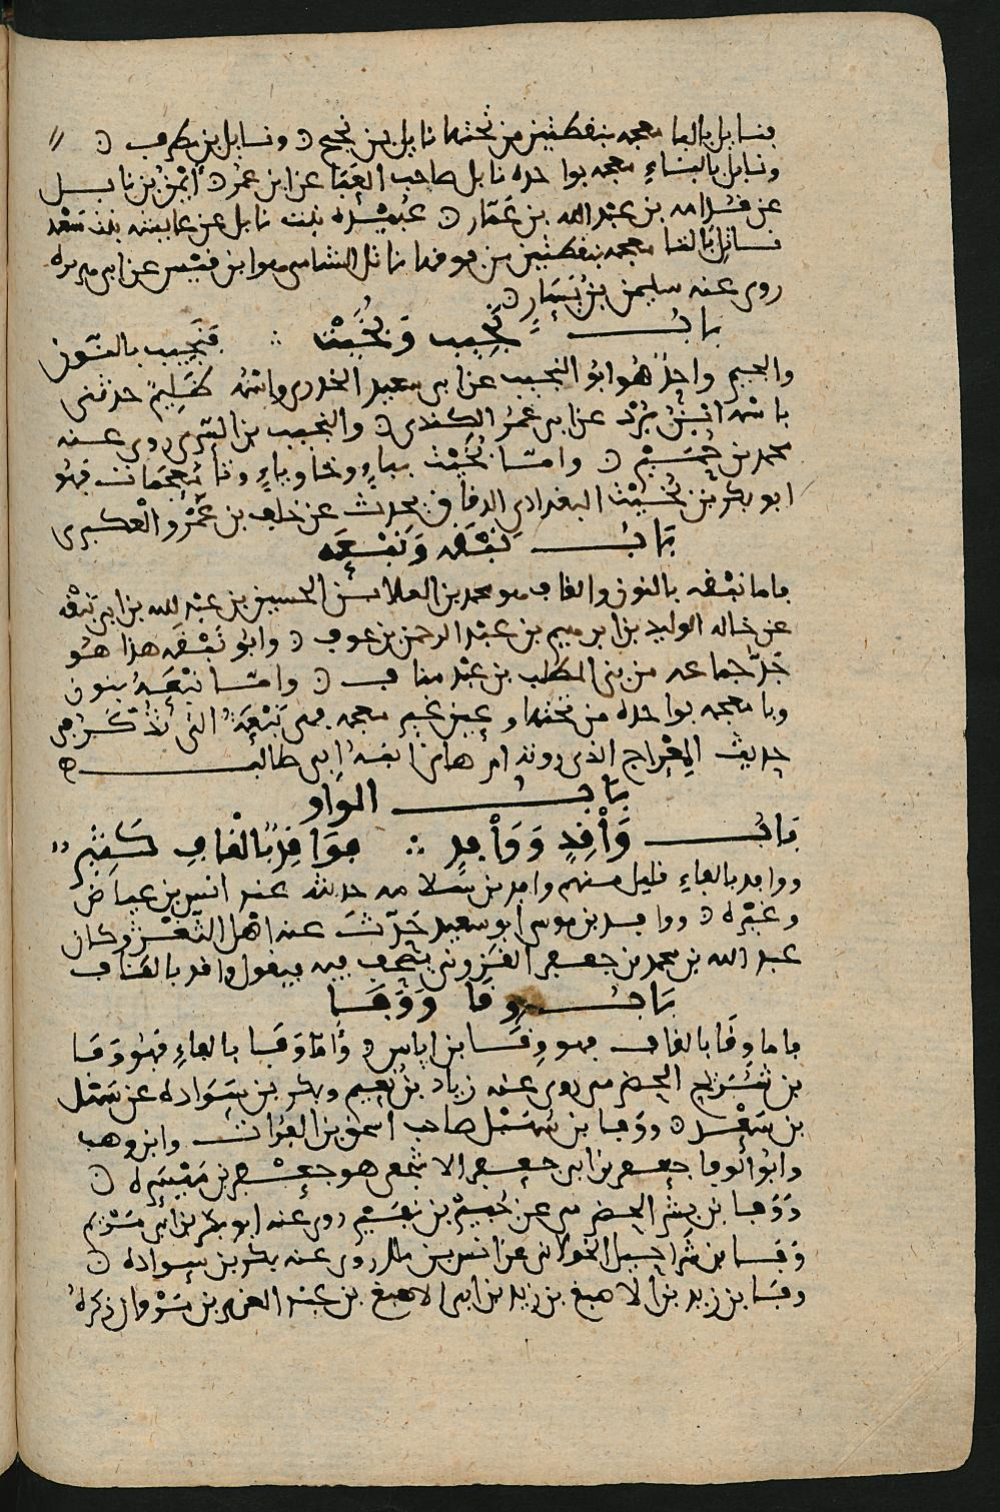 فنايل باليا معجمه بنقطتين من تحتها نايل بن نجيح ونايل بن مطرف
ونابل بالباء معجمه بواحده نابل صاحب العبا عن ابن عمر أيمن بن نابل
عن قدامه بن عبد الله بن عمار عبيده بنت نابل عن عايشه بنت سعد
ناتل بالتا معجمه بنقطتين من فوقها ناتل الشامي هو ابن قيس عن ابي هريره
روى عنه سليمن بن يسار
باب نجيب وبخيت فنجيب بالنون
والجيم واحد هو ابو النجيب عن ابي سعيد الخدري واسمه ظليم حدثني
باسمه ابن يزد عن ابي عمر الكندي والنجيب بن السري روى عنه
محمد بن حمير وامّا بخيت بباء وخا وياء وتا معجمات فهو
ابو بكر بن بخيت البغدادي الدقاق يحدث عن خلف بن عمرو العكبري
باب نبقه ونبعه
فاما نبقه بالنون والقاف هو محمد بن العلا بن الحسين بن عبد الله بن ابي نبقه
عن خاله الوليد بن ابرهيم بن عبد الرحمن بن عوف وابو نبقه هذا هو
جدّ جماعه من بني المطلب بن عبد مناف وامّا نبعه بنون
وبا معجمه بواحده من تحتها وعين غير معجمه فهي نبعه التي تذكر في
حديث المعراج الذي روته ام هاني ابنه ابي طالب
باب الواو
باب واقد ووافد فواقد بالقاف كثير
ووافد بالفاء قليل منهم وافد بن سلامه حدث عنه انس بن عياض
وغيره ووافد بن موسى ابو سعيد حدّث عنه اهل الثغر وكان
عبد الله بن محمد بن جعفر القزويني يصحف فيه فيقول واقد بالقاف
باب وقا ووفا
فاما وقا بالقاف فهو وقا بن اياس وأمّا وفا بالفاء فهو وفا
بن شريح الحضرمي روى عنه زياد بن نعيم وبكر بن سواده عن سهل
بن سعد ووفا بن سهيل صاحب اسحق بن الفرات وابن وهب
وابو الوفا جعفر بن ابي جعفر الاشجعي هو جعفر بن ميسره
ووفا بن بشر الحضرمي عن جبير بن نفير روى عنه ابو بكر بن ابي مريم
وفا بن شراحيل الخولاني عن انس بن ملك روى عنه بكر بن سواده
وفا بن زيد بن الاصبغ بن زيد بن ابي الاصبغ بن عبد العزيز بن مروان ذكره